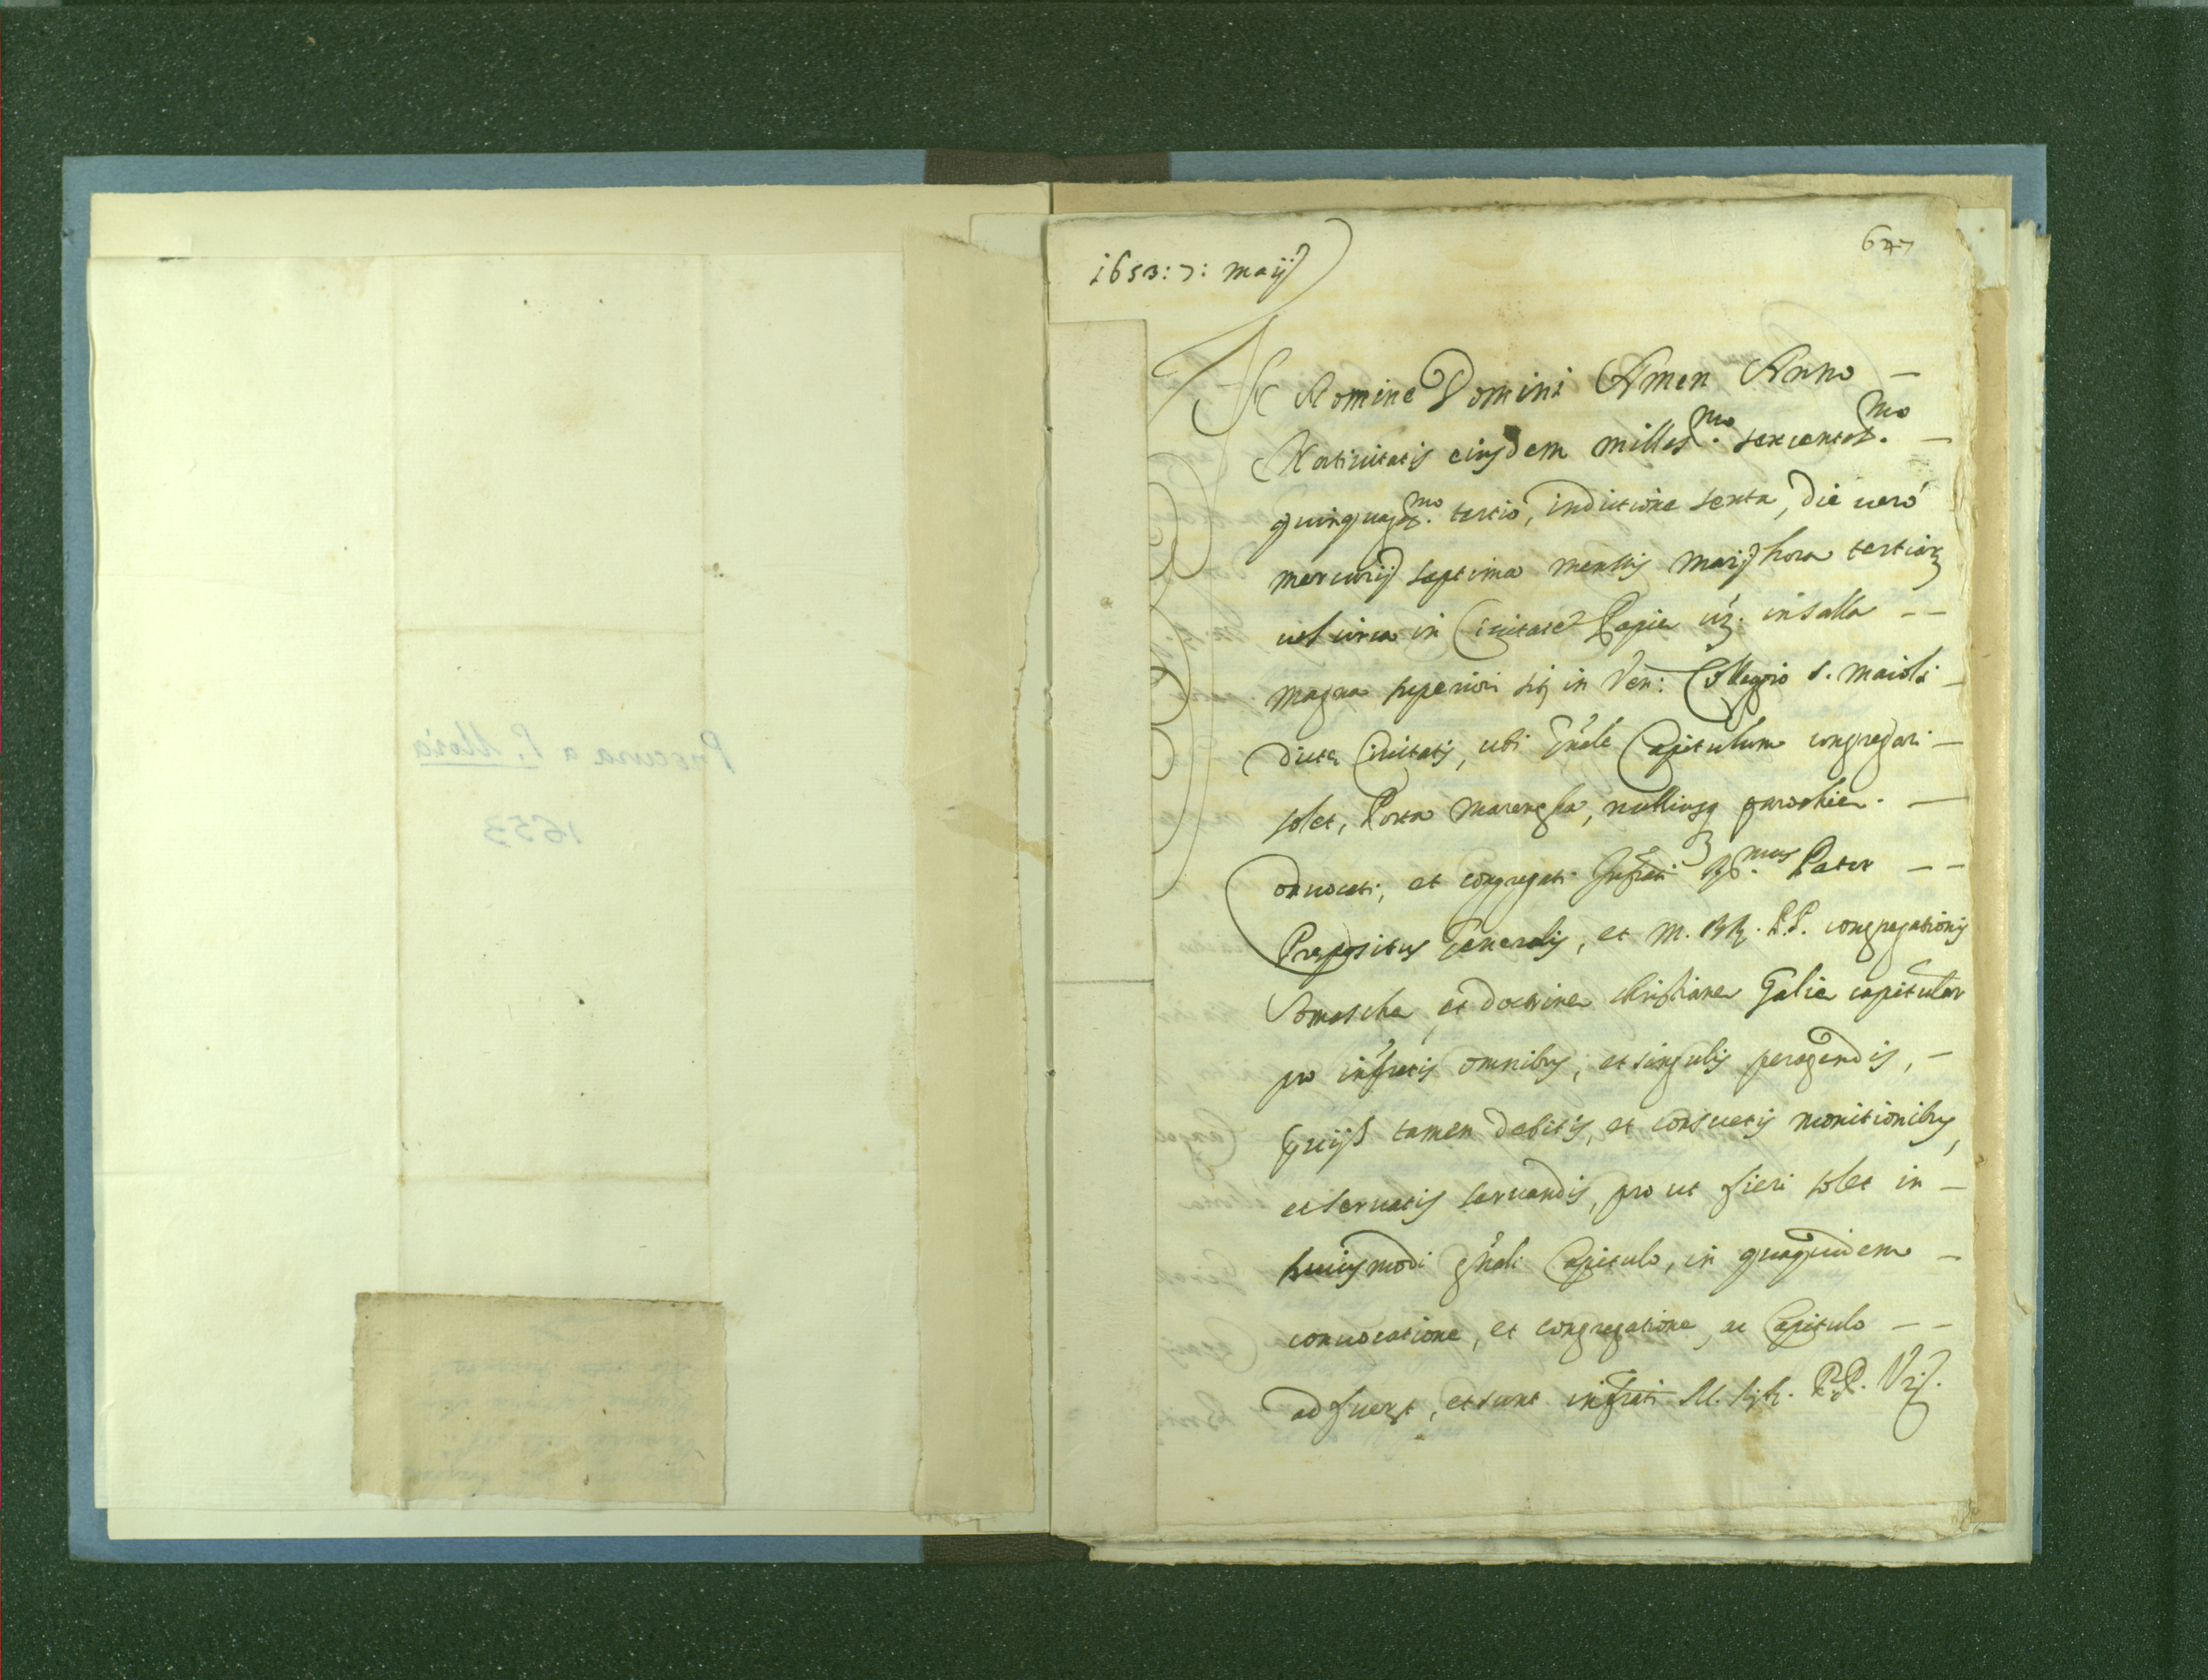 Procura a P. Moia
1653
1653: 7: maij
647
In Nomine Domini Amen Anno —
Nativitatis eiusdem milles.mo sexcentes.mo —
quinquag.mo tertio, inditione sexta, die uerò
mercurij septima mensis maij hora tertiar
uel circa in Ciuitate Papiæ uz. in salla – –
magna superiori sit in Ven: Collegio S. Maioli –
dictæ Ciuitatis, ubi g'nale Capitulum congregari –
solet, Porta Marengha, nulliusq parochiæ. —
Conuocati, et congregati Infrati R.mus Pater – –
Præpositus Generalis, et M. RR. P.P. congregationis
Somaschæ, et doctrinæ christianæ Galiæ capitular
pro infratis omnibus, et singulis peragendis, –
seruatis tamen debitis, et consuetis monitionibus,
et seruatis seruandis, pro ut fieri solet in –
huiusmodi g'nali Capitulo, in quaquidem –
conuocatione, et congregatione, ac Capitulo – –
adfuerut, et sunt infrati M. RR. P.P. Vz.